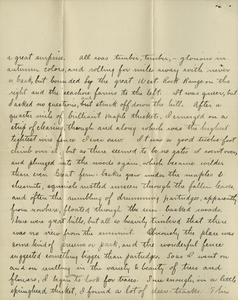 a great surprise. All was timber, timber, – glorious in
autumn colors, and rolling for miles away with never
a break, but bounded by the great West Rock Range on the
right and the seashore farms to the left. It was queer, but
I asked no questions, but struck off down the hill. After a
quarter mile of brilliant maple thicket, I emerged on a
strip of clearing, through and along which was the highest
tightest wire fence I ever saw. It was a good twelve foot
climb over it, but as there seemed to be no gates I went over,
and plunged into the woods again which became wilder
than ever. Great fern-banks grew under the maples &
chestnuts, squirrels rustled unseen through the fallen leaves,
and often the rumbling of drumming partridge, apparently
from nowhere, floated through the sun touched woods.
Here was a great hill, but all so densely timbered that there
was no view from the summit. Obviously the place was
some kind of preserve or park, and the wonderful fence
suggested something bigger than partridges. Soon I went on
and on reveling in the variety & beauty of trees and
flowers, I began to look for traces. Sure enough, in a little
springhead thicket, I found a lot of deer-tracks. Then